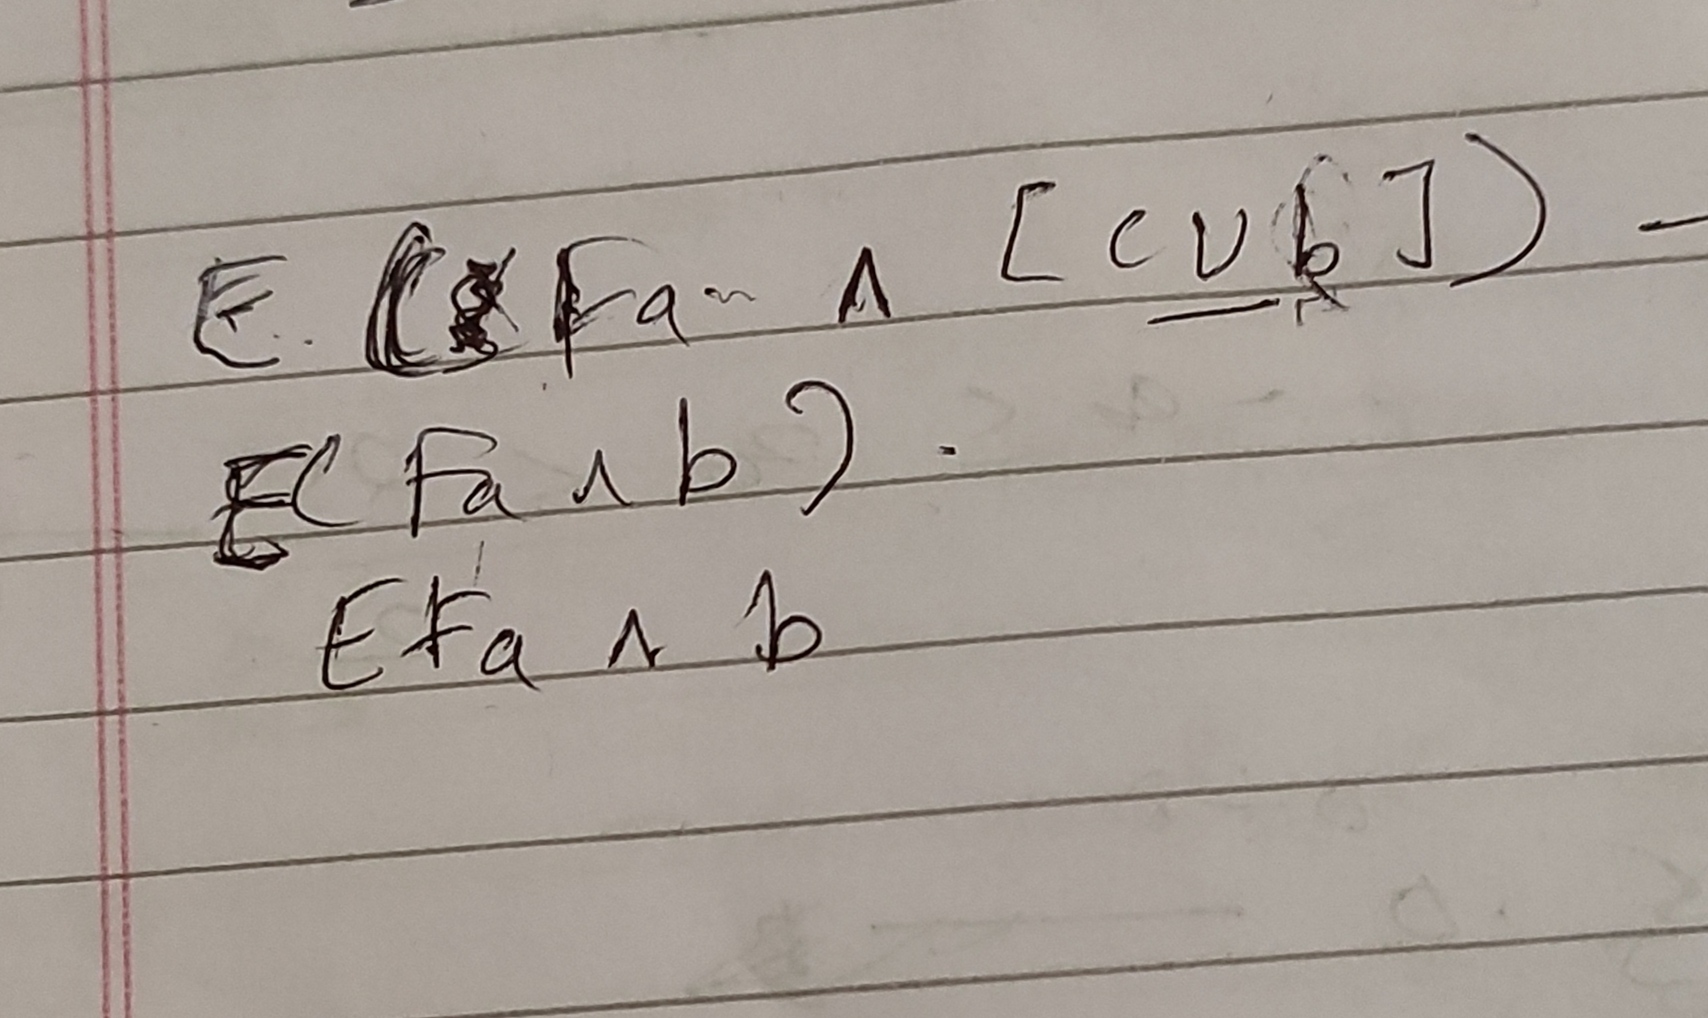 E. ( Fa ∧ [ c U b ] ) -
E( Fa ∧ b ) .
E Fa ∧ b